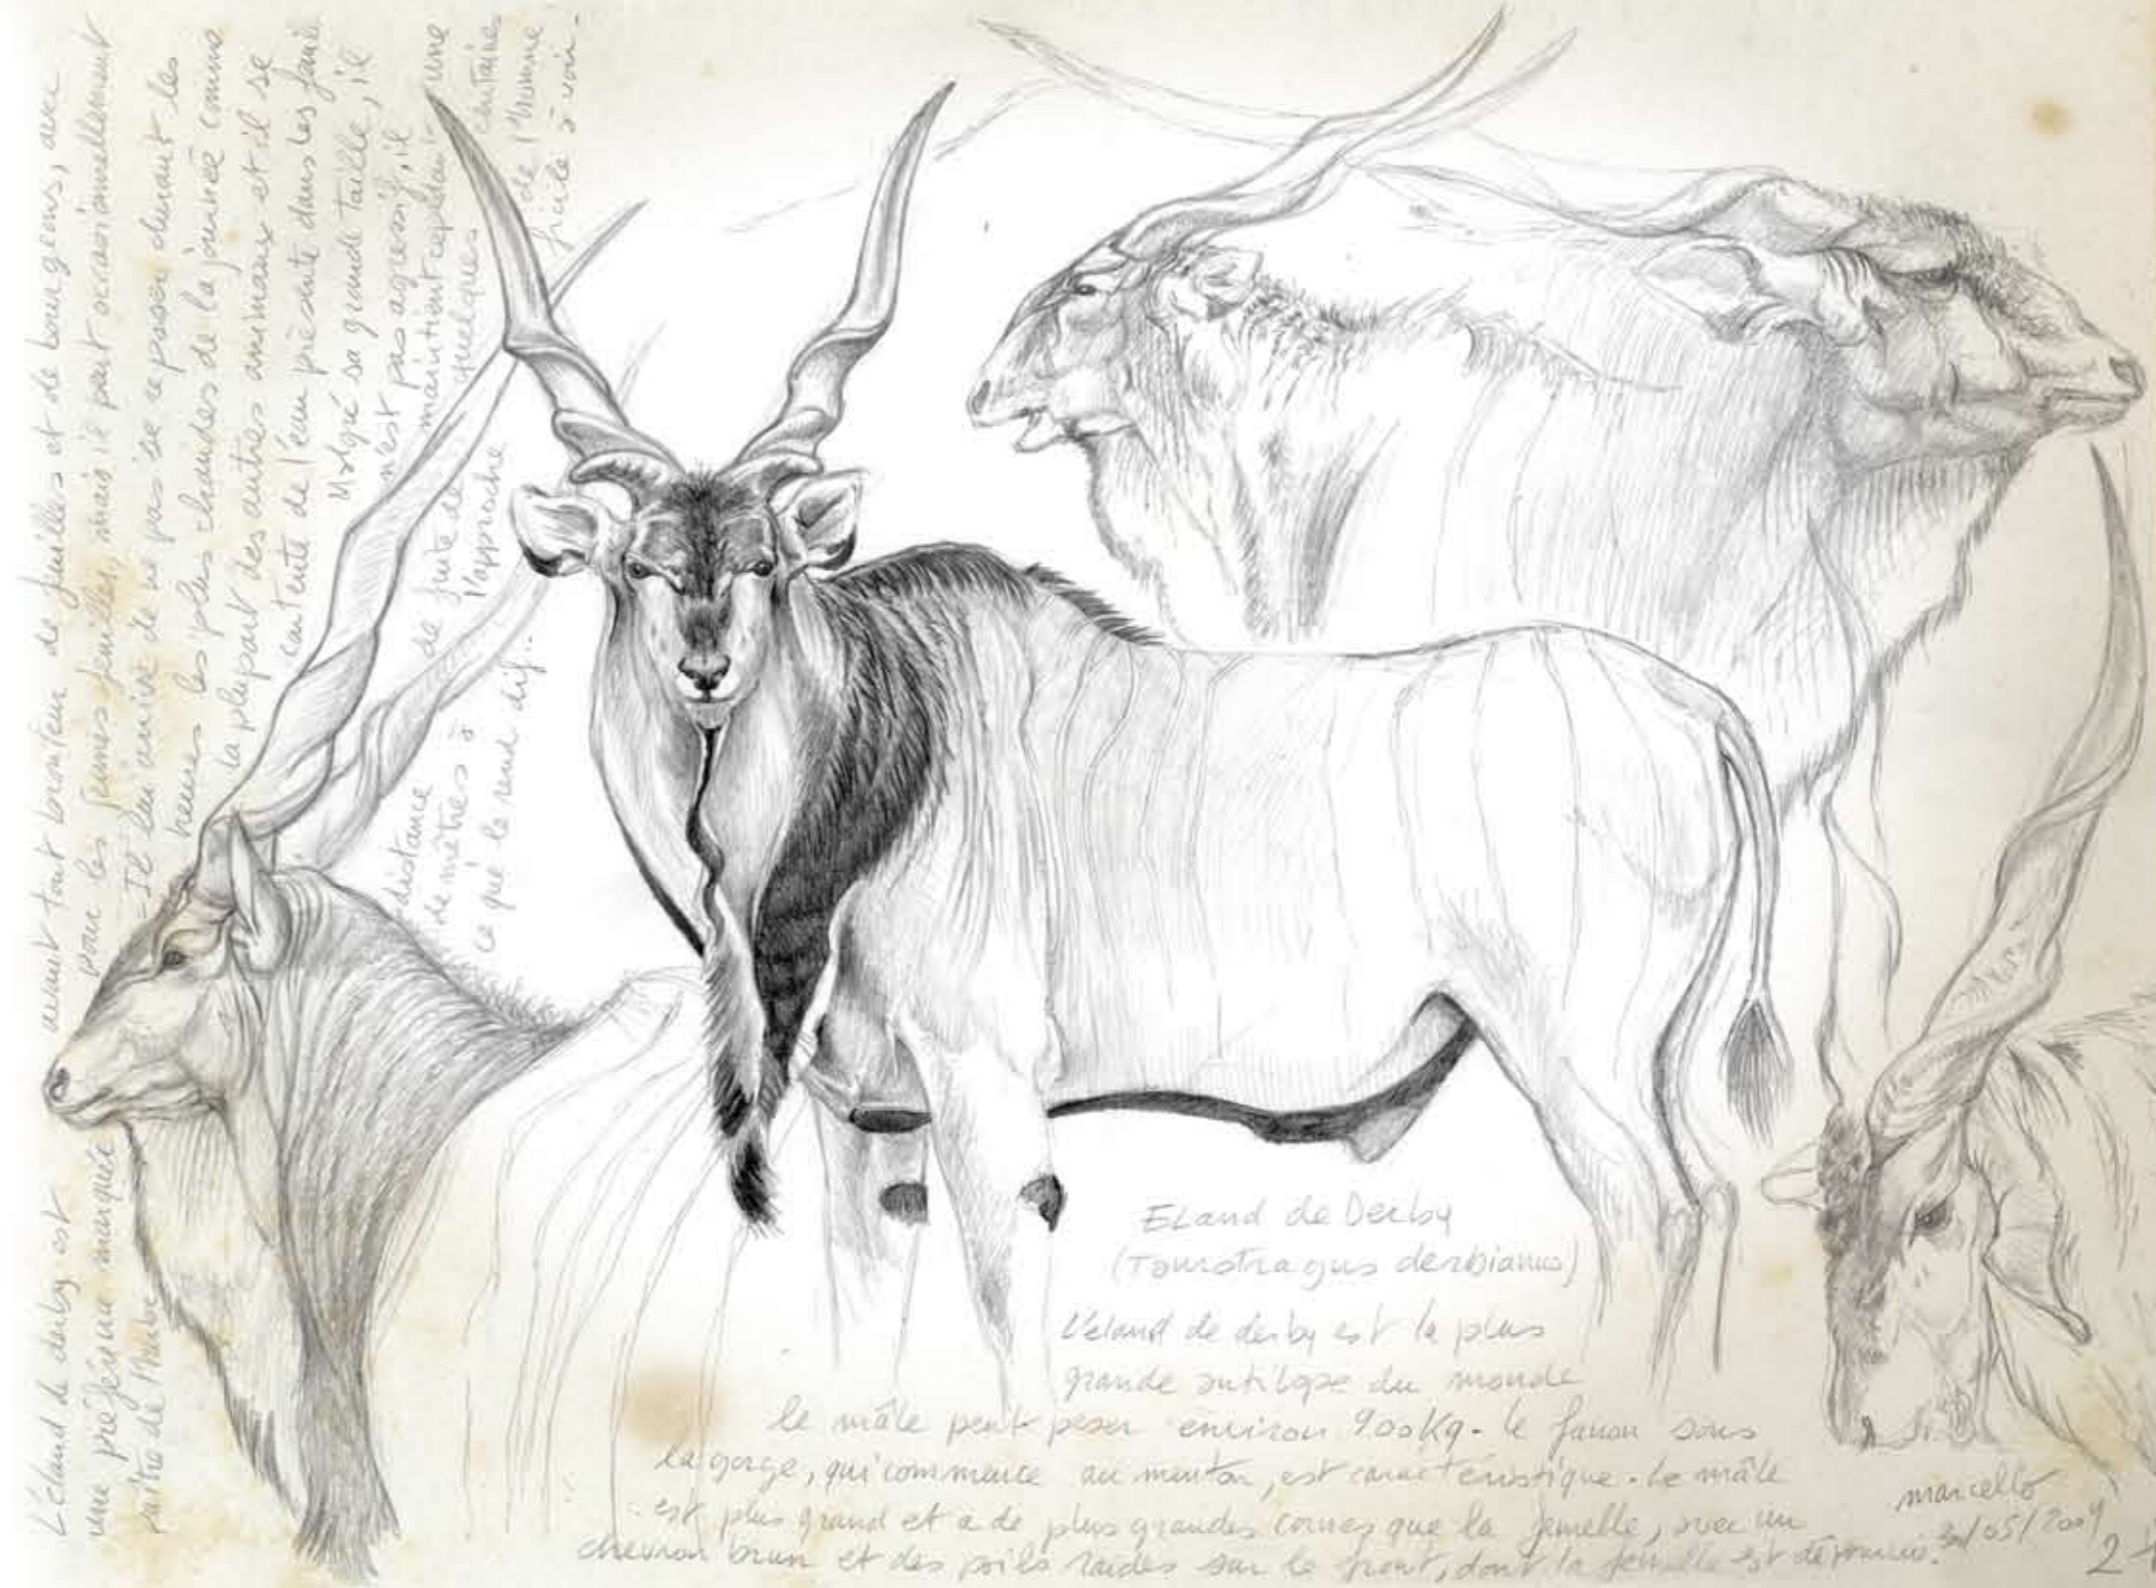 L'éland de derby est avant tout brouteur de feuilles et de bourgeons, avec
une préférence marquée pour les jeunes feuilles, mais il peut occasionnellement
paître de l'herbe - Il lui arrive de ne pas se reposer durant les
heures les plus chaudes de la journée comme
la plupart des autres animaux et il se
contente de l'eau présente dans les
Malgré sa grande taille, il
n'est pas agressif, il
maintient cependant une
distance de fuite de quelques centaines
de mètres à l'approche de l'homme
ce que le rend dif.. ficile à voir -
Eland de Derby
(Taurotragus derbianus)
L'eland de derby est la plus
grande antilope du monde
le mâle peut peser environ 900 Kg - le fanon sous
la gorge, qui commence au menton, est caractéristique. Le mâle
est plus grand et a de plus grandes cornes que la femelle, avec un
chevron brun et des poils raides sur le front, dont la femelle est dépourvue.
marcello
/05/2009